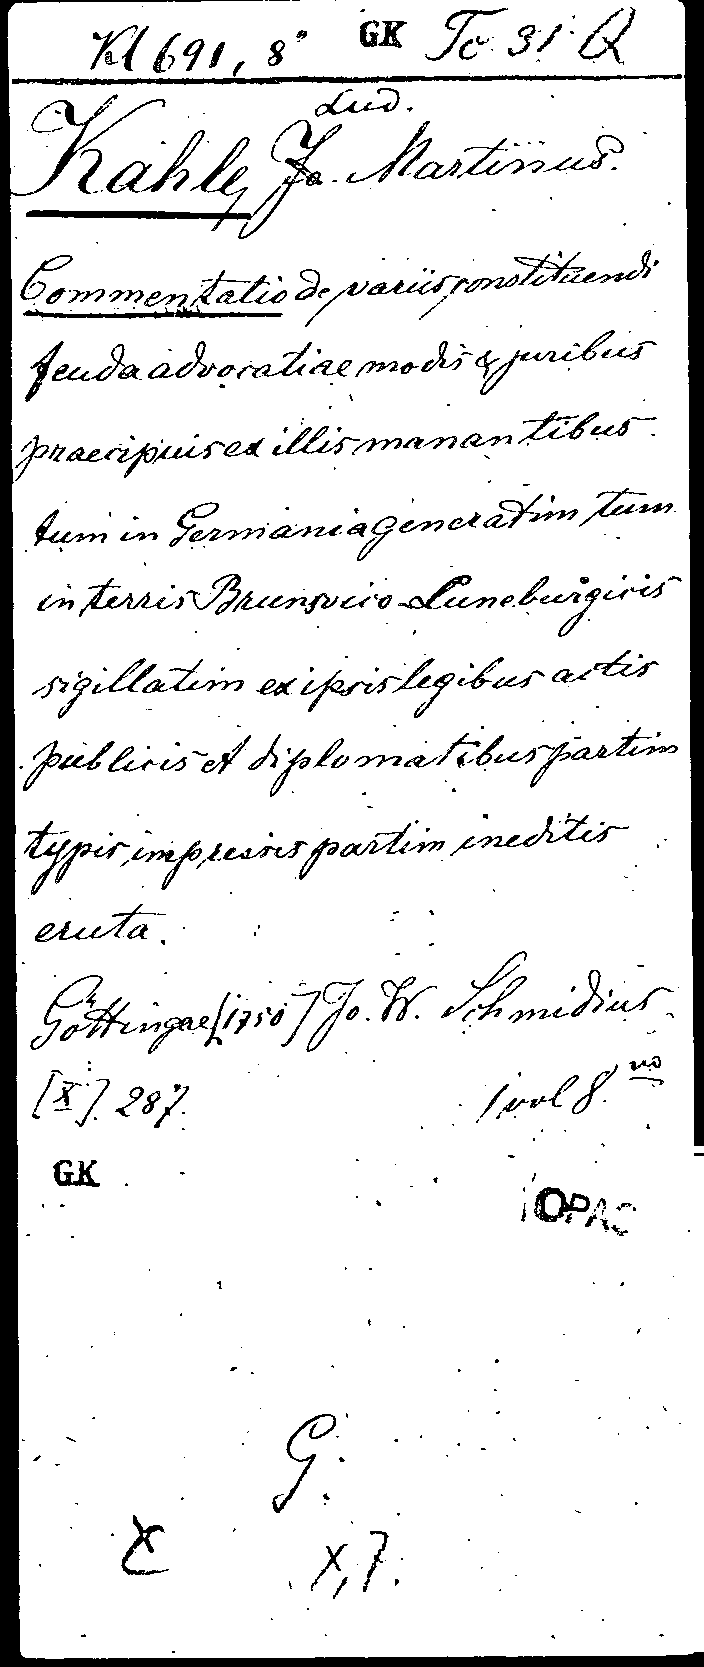 Kl 691, 8° GK Tc 31 Q
Lud.
Kahle, Jo. Martinus.
Commentatio de variis constituendi
feuda advocatiae modis & juribus
praecipuis ex illis manantibus
tum in Germania generatim tum
in terris Brunsvico-Luneburgicis
sigillatim ex ipsis legibus actis
publicis et diplomatibus partim
typis impressis partim ineditis
eruta.
Göttingae [1750] Jo. W. Schmidius
[X]. 287. 1 vol 8.vo
GK
OPAC
G.
X
X, 7.